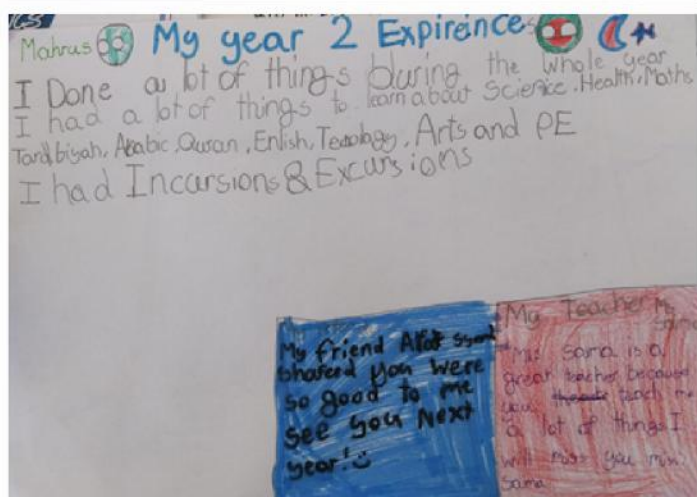 ICS
Mahrus
My year 2 Expirence
I Done a lot of things During the Whole year
I had a lot of things to learn about Science. Health, Maths
Tardbiyah, Arabic, Quran, Enlish, Tecnology, Arts and PE
I had Incursions & Excursions
My friend
shared you Were
so good to me
see you Next
year!
My Teacher Ms
Sama
Miss Sama is a
great teacher because
you teach me
a lot of things I
will miss you miss
Sama